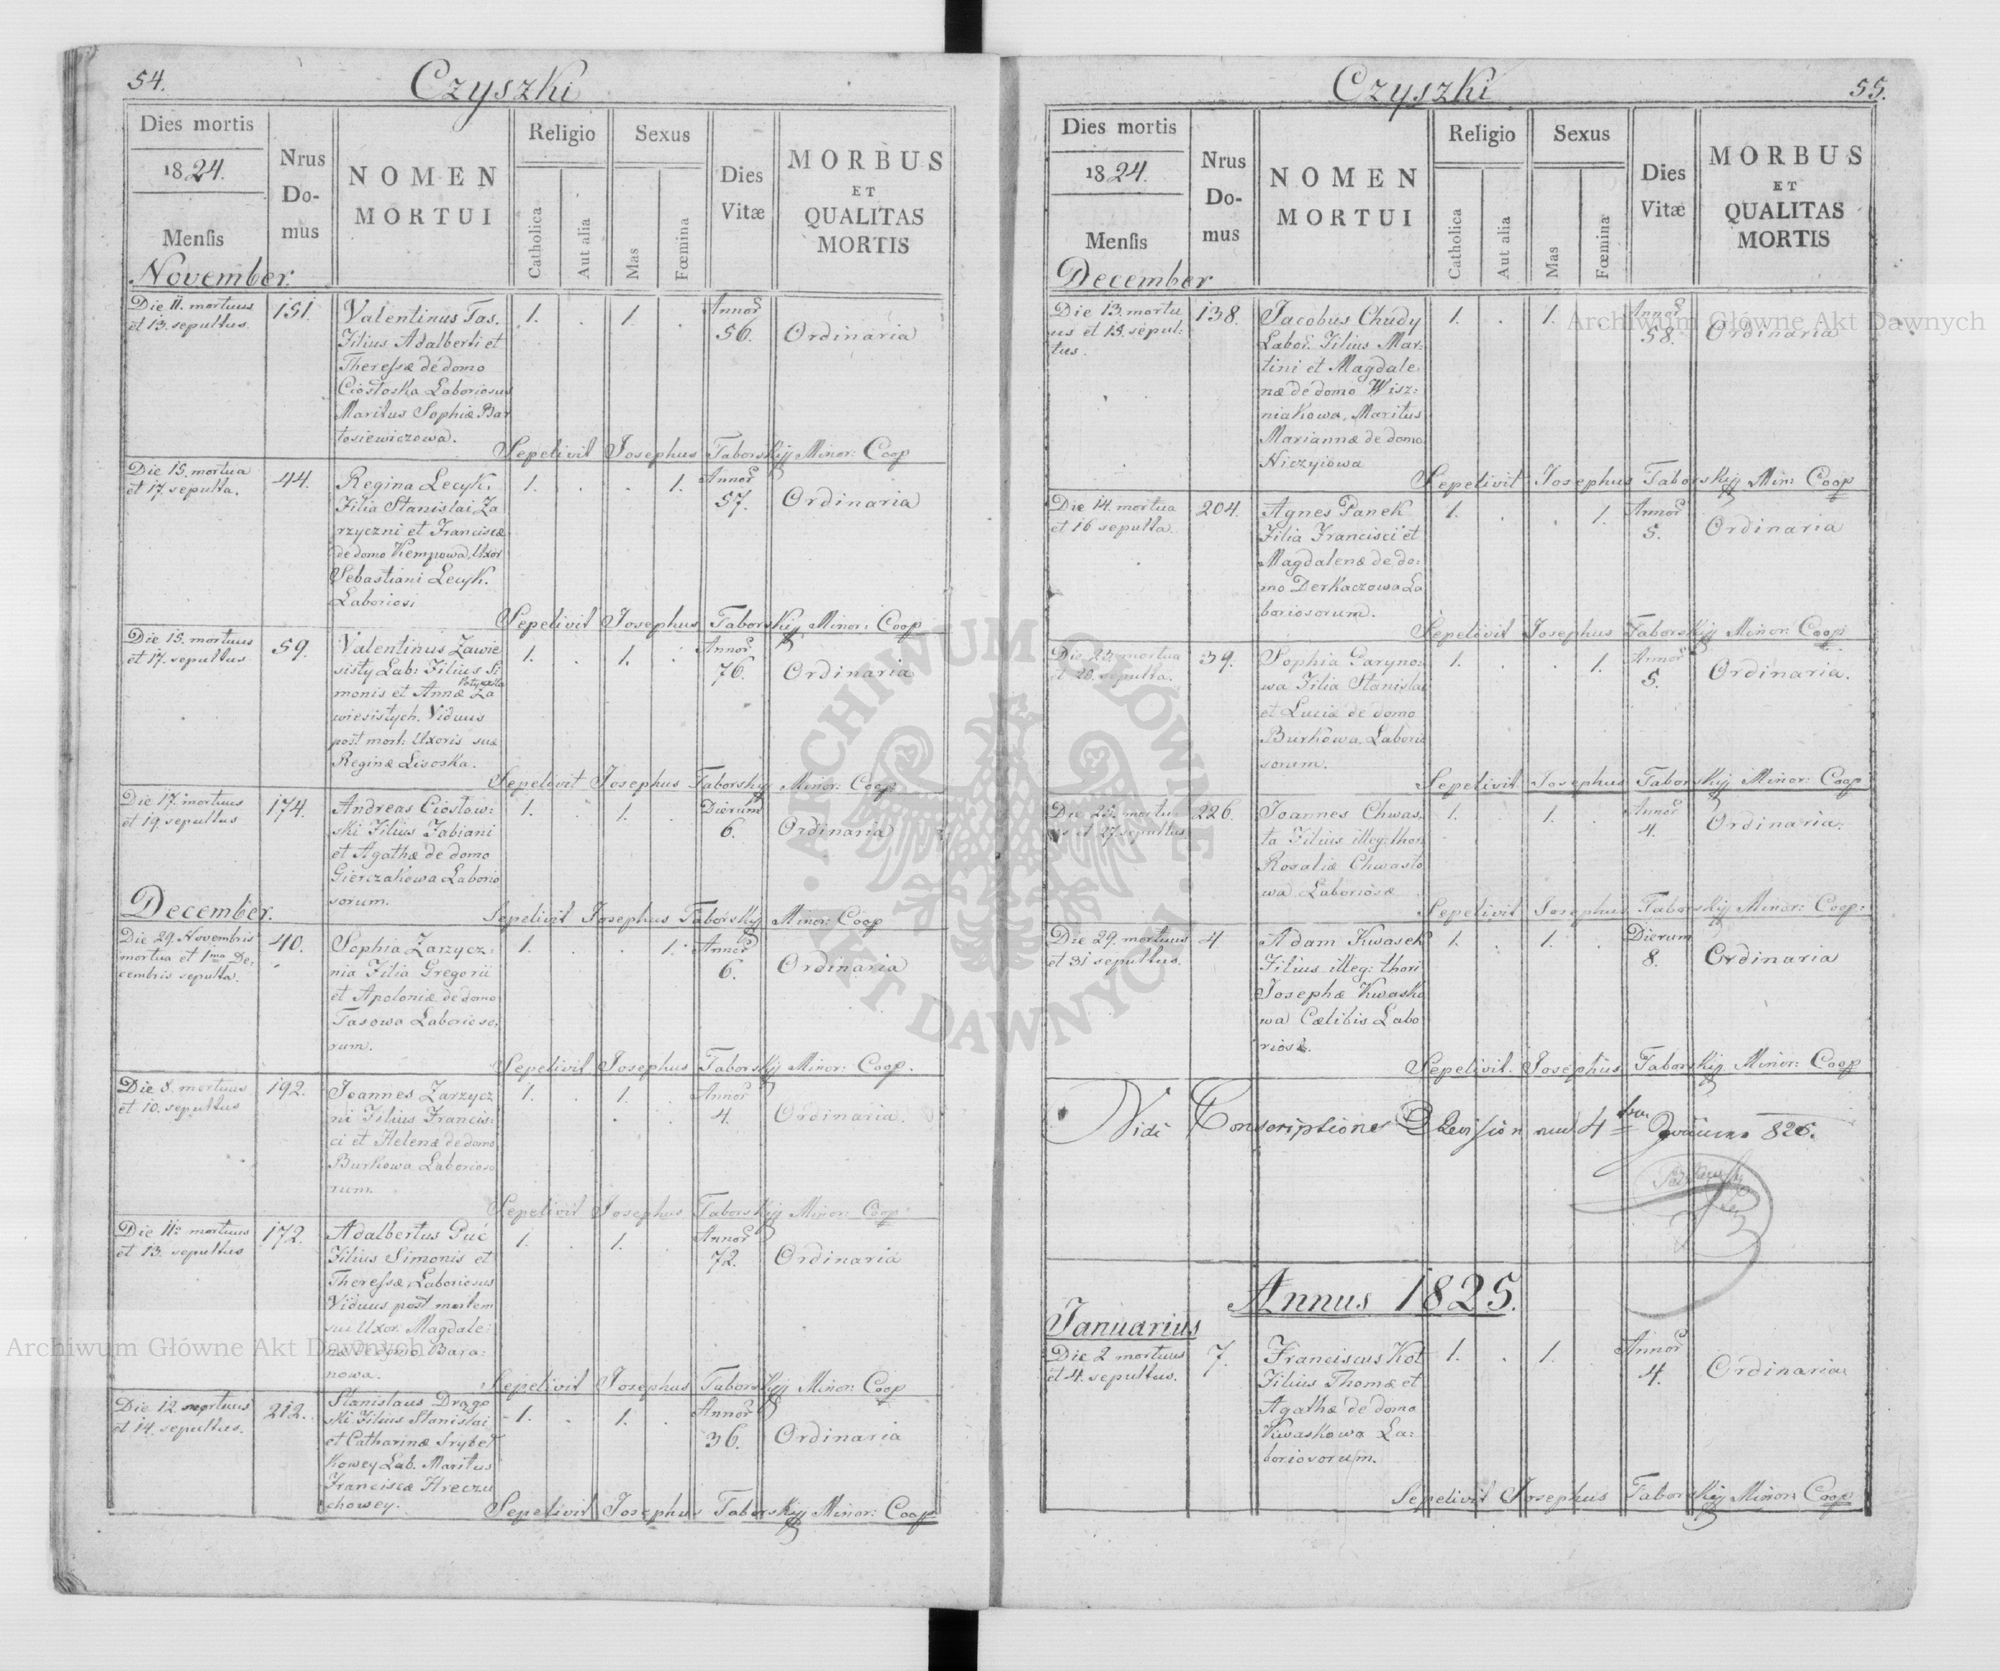 54.
Czyszki
Dies mortis
1824.
Mensis
November.
Nrus
Do-
mus
NOMEN
MORTUI
Religio
Catholica
Aut alia
Sexus
Mas
Fœmina
Dies
Vitæ
MORBUS
ET
QUALITAS
MORTIS
Die 11. mortuus
et 13. sepultus.
151.
Valentinus Tos.
Filius Adalberti et
Theressæ de domo
Ciostoska Laboriosus
Maritus Sophiæ Bar
tosiewiczowa.
1. . 1. .
Annor
56.
Ordinaria
Sepelivit Josephus Taborskij Minor: Coop
Die 15. mortua
et 17. sepulta.
44.
Regina Lecyk.
Filia Stanislai Za
rzyczni et Franciscæ
de domo Kempowa, Uxor
Sebastiani Lecyk.
Laboriosi
1. . . 1.
Annor
57.
Ordinaria
Sepelivit Josephus Taborskij Minor: Coop
Die 15. mortuus
et 17. sepultus
59.
Valentinus Zawie
sisty Lab: Filius Si
monis et Annæ Za
wiesistych. Viduus
post mort: Uxoris suæ
Reginæ Lisoska.
1. . 1. .
Annor
76.
Ordinaria
Sepelivit Josephus Taborskij Minor: Coop
Die 17. mortuus
et 19. sepultus
174.
Andreas Ciostow:
ski Filius Fabiani
et Agathæ de domo
Gierczakowa Laborio
sorum.
1. . 1. .
Dierum
6.
Ordinaria
Sepelivit Josephus Taborskij Minor: Coop
December.
Die 29. Novembris
mortua et 1ma De:
cembris sepulta.
40.
Sophia Zarzycz:
nia Filia Gregorii
et Apoloniæ de domo
Tasowa Laborioso,
rum.
1. . . 1.
Annor
6.
Ordinaria
Sepelivit Josephus Taborskij Minor: Coop.
Die 8. mortuus
et 10. sepultus
192.
Joannes Zarzycz
ni Filius Francis:
ci et Helenæ de domo
Burkowa Laborioso
rum.
1. . 1. .
Annor
4.
Ordinaria.
Sepelivit Josephus Taborskij Minor: Coop
Die 11. mortuus
et 13. sepultus
172.
Adalbertus Guć
Filius Simonis et
Theressæ, Laboriosus
Viduus post mortem
suæ Uxor: Magdale:
næ de domo Bara:
nowa.
1. . 1. .
Annor
72.
Ordinaria
Sepelivit Josephus Taborskij Minor: Coop
Die 12. mortuus
et 14. sepultus.
212.
Stanislaus Drago
ski Filius Stanislai
et Catharinæ Srybet
kowey Lab. Maritus
Franciscæ Hreczu
chowey.
1. . 1. .
Annor
36.
Ordinaria
Sepelivit Josephus Taborskij Minor: Coop
55.
Czyszki
Dies mortis
1824.
Mensis
December
Nrus
Do-
mus
NOMEN
MORTUI
Religio
Catholica
Aut alia
Sexus
Mas
Fœmina
Dies
Vitæ
MORBUS
ET
QUALITAS
MORTIS
Die 13. mortu
us et 15. sepul:
tus.
138.
Jacobus Chudy
Labor. Filius Mar:
tini et Magdale
næ de domo Wisz:
niakowa, Maritus
Mariannæ de domo
Niczyiowa
1. . 1. .
Annor
58.
Ordinaria
Sepelivit Josephus Taborskij Min: Coop
Die 14. mortua
et 16 sepulta.
204.
Agnes Panek
Filia Francisci et
Magdalenæ de do:
mo Derkaczowa La
boriosorum.
1. . . 1.
Annor
5.
Ordinaria
Sepelivit Josephus Taborskij Minor: Coop
Die 23. mortua
sepulta.
39.
Sophia Paryno:
wa Filia Stanislai
et Luciæ de domo
Burkowa, Laborio
sorum.
1. . . 1.
Annor
5.
Ordinaria.
Sepelivit Josephus Taborskij Minor: Coop
Die 25. mortu
us et 27. sepultus
226.
Joannes Chwas,
ta Filius illeg: thori
Rosaliæ Chwasto
wa Laboriosæ
1. . 1. .
Annor
4.
Ordinaria.
Sepelivit Josephus Taborskij Minor: Coop:
Die 29. mortuus
et 31 sepultus.
4
Adam Kwasek
Filius illeg: thori
Josephæ Kwasko
wa Cælibis Labo
riosæ.
1. . 1. .
Dierum
8.
Ordinaria
Sepelivit. Josephus Taborskij Minor: Coop
Vidi
826.
Annus 1825.
Januarius
Die 2 mortuus
et 4. sepultus.
7.
Franciscus Kot
Filius Thomæ et
Agathæ de domo
Kwaskowa La:
boriosorum.
1. . 1. .
Annor
4.
Ordinaria
Sepelivit Josephus Taborskij Minor: Coop
ARCHIWUM GŁÓWNE AKT DAWNYCH
Archiwum Główne Akt Dawnych
Archiwum Główne Akt Dawnych